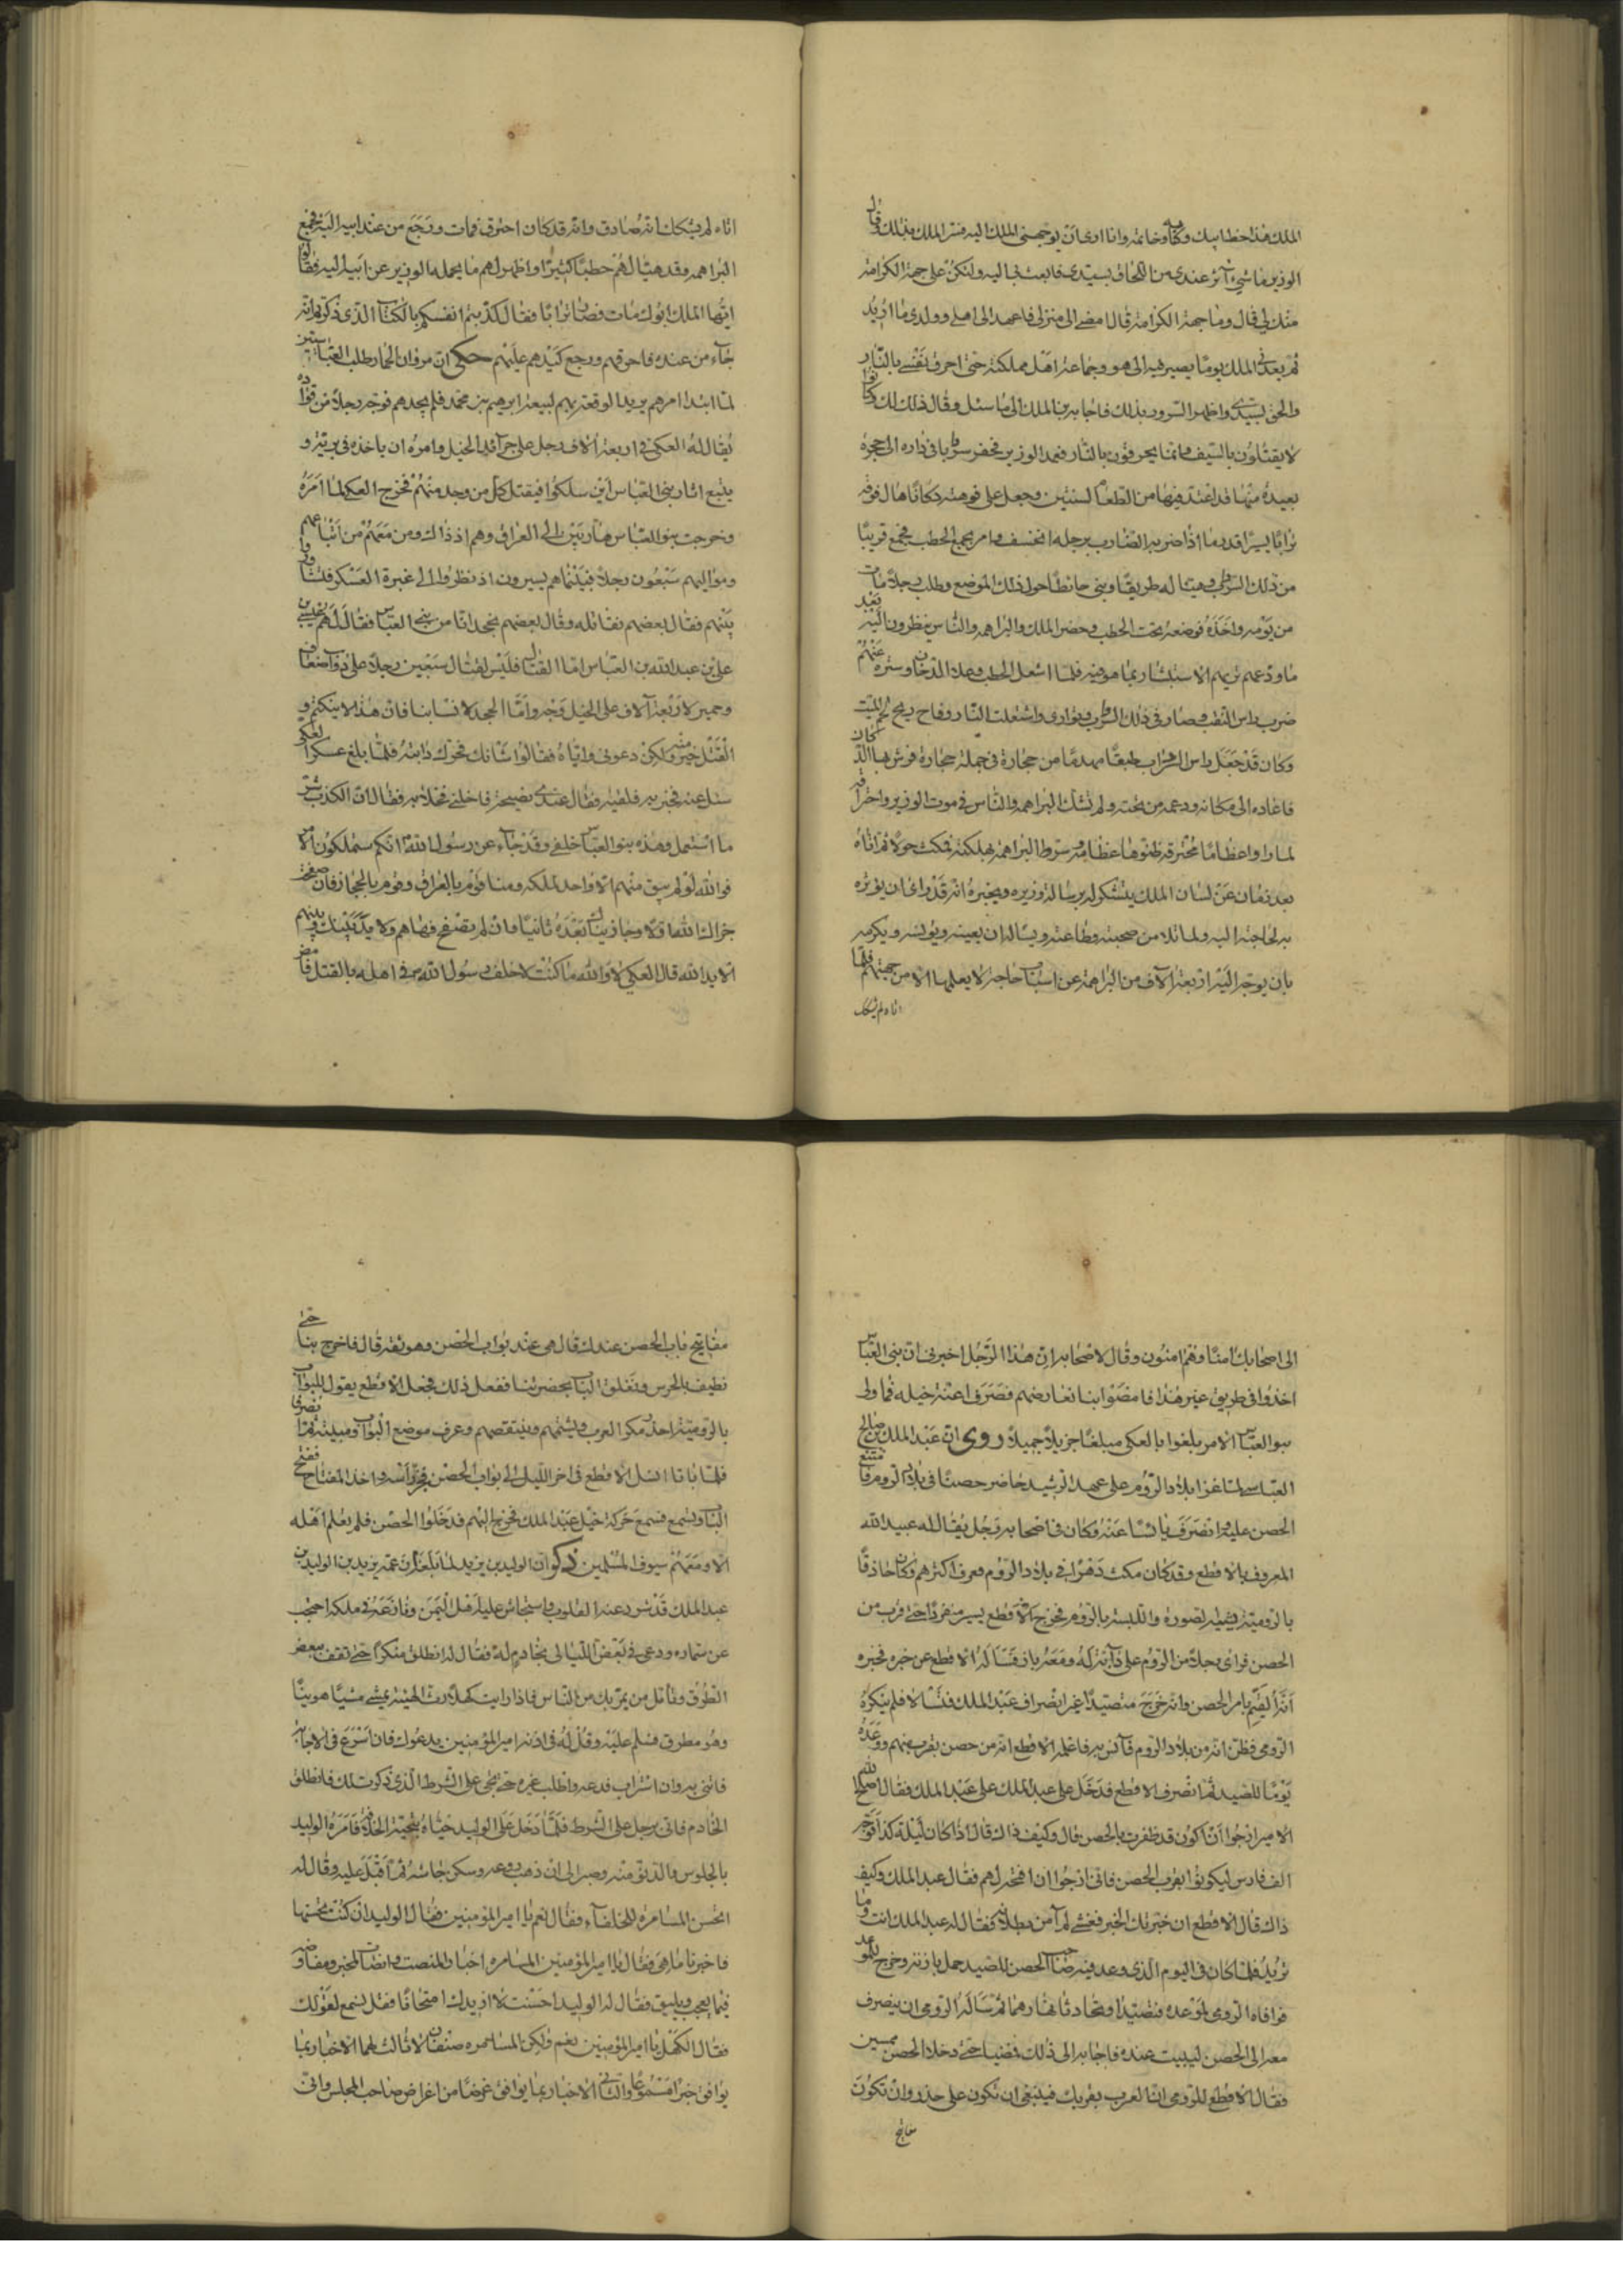 الملك هذا خط ابيك وكتابه وخاتمه وانا ارى ان يوجهني الملك اليه فسر الملك بذلك وقال
الوزير ما شيء آثر عندي من اللحاق بسيدي فابعث بي اليه ولتكن على جهة الكرامة
منك لي قال وما جهة الكرامة قال امضي الى منزلي فاعهد الى اهلي وولدي ما اريد
ثم يعدني الملك يوما يصير فيه الي هو وجماعة اهل مملكته حتى احرق نفسي بالنار
والحق بسيدي واظهر السرور بذلك فاجابه بن الملك الى ما سئل وقال ذلك لك وكانوا
لا يقتلون بالسيف وانما يحرقون بالنار فعمد الوزير فحفر سربا في داره الى حجرة
بعيدة منها قد اعتد فيها من الطعام لسنتين وجعل على فوهته دكانا هال فوقه
ترابا يسيرا قدر ما اذا ضربه الضارب برجله انخسف وامر بجمع الحطب فجمع قريبا
من ذلك السرب وهيا له طريقا وبنى حائطا حول ذلك الموضع وطلب رجلا مات
من يومه واخذه فوضعه تحت الحطب وحضر الملك والبراهمة والناس ينظرون اليه بعد
ما ودعهم يريهم الاستبشار بما هو فيه فلما اشعل الحطب وعلا الدخان وستره عنهم
ضرب راس النقب وصار في ذلك السرب وتوارى واشتعلت النار وفاح ريح لحم الميت
وكان قد جعل راس السرب طبقا مهندما من حجارة في جملة حجارة فرش بها الدكان
فاعاده الى مكانه ودعمه من تحته ولم تشك البراهمة والناس في موت الوزير واحراقه
لما راوا عظاما محترقة ظنوها عظامه وسر البراهمة بهلكته فمكث حولا ثم اتاه
بعد زمان عن لسان الملك يتشكر له برسالة وزيره ويخبره انه قد راى ان يؤثره
به لحاجته اليه ولما تلا من صحبته وطاعته ويساله ان يعينه ويؤنسه ويكرمه
بان يوجه اليه اربعة آلاف من البراهمة عن اسباب حاجة لا يعلمها الا من جهتهم فلما
اتاه لم يشكك
اتاه لم يشكك انه صادق وانه قد كان احترق فمات ورجع من عند ابيه اليه فجمع
البراهمة وقد هيا لهم حطبا كثيرا واظهر لهم ما يحمله الوزير عن ابيه اليه فقالوا
ايها الملك ابوك مات فصار ترابا فقال كذبتم انفسكم بالكتاب الذي ذكرتم انه
جاء من عنده فاحرقهم ورجع كيدهم عليهم حكى ان مروان الحمار طلب العباسيين
لما ابتدا امرهم يريد الوقعة بهم لبيعة ابرهيم بن محمد فلم يجدهم فوجه رجلا من قواده
يقال له العكي في اربعة آلاف رجل على جرائد الخيل وامره ان ياخذه في برية و
يتبع اثار بني العباس اين سلكوا فيقتل كل من وجد منهم فخرج العكي لما امره
وخرجت بنو العباس هاربين الى العراق وهم اذ ذاك ومن معهم من اتباعهم
ومواليهم سبعون رجلا فبينما هم يسيرون اذ نظروا الى غبرة العسكر فتشاوروا
بينهم فقال بعضهم نقاتله وقال بعضهم نجحد انا من بني العباس فقال لهم عيسى بن
علي بن عبد الله بن العباس اما القتال فليس لقتال سبعين رجلا على دواب ضعاف
وحمير لاربعة آلاف على الخيل وجه واما الجحد لانسابنا فان هذا لا ينكتم و
القتل خير منه ولكن دعوني واياه فقالوا شانك فحرك دابته فلما بلغ عسكر العكي
سئل عنه فخبر به فلقيه وقال عندي نصيحة فاخلني فخلا به فقال ان الكذب شر
ما استعمل وهذه بنو العباس خلفي وقد جاء عن رسول الله انكم ستملكون الامر
فوالله لو لم يبق منهم الا واحد لملكه ومنا قوم بالعراق وقوم بالحجاز فان صفحت
جزاك الله اولا وجازيناك بعده ثانيا وان لم تصفح فها هم ولا يد بينك وبينهم
الا يد الله قال العكي لا والله ما كنت لاخلف رسول الله في اهله بالقتل فامض
الى اصحابك امنا وهم امنون وقال لاصحابه ان هذا الرجل اخبرني ان بني العباس
اخذوا في طريق غير هذا فامضوا بنا نعارضهم فصرف اعنة خيله فما ولي
بنو العباس الامر بلغوا بالعكي مبلغا جزيلا جميلا روى ان عبد الملك بن صالح
العباسي لما غزا بلاد الروم على عهد الرشيد حاصر حصنا في بلاد الروم فامتنع
الحصن عليه وانصرف يائسا عنه وكان في اصحابه رجل يقال له عبيد الله
المعروف بالاقطع وقد كان مكث دهرا في بلاد الروم وعرف اكثرهم وكان حاذقا
بالرومية يشبه لصورة واللبسة بالروم فخرج الاقطع يسير منفردا حتى قرب من
الحصن فراى رجلا من الروم على دابة له ومعه باز فساله الاقطع عن خبره فخبره
انه القيم بامر الحصن وانه خرج متصيدا غب انصراف عبد الملك فتشالا فلم ينكره
الرومي وظن انه من بلاد الروم فآنس به فاعلمه الاقطع انه من حصن بقرب منهم ووعده
يوما للصيد ثم انصرف الاقطع فدخل على عبد الملك على عبد الملك فقال اصلح الله
الامير ارجوا ان اكون قد ظفرت بالحصن قال وكيف ذاك قال اذا كان ليلة كذا توجه
الف فارس ليكونوا بقرب الحصن فاني ارجوا ان افتحه لهم فقال عبد الملك وكيف
ذاك قال الاقطع ان خبرتك الخبر فغشي لم آمن بطلانه فقال له عبد الملك انت وما
تريد فلما كان في اليوم الذي وعد فيه صاحب الحصن للصيد حمل بازه وخرج للموعد
فوافاه الرومي لموعده فتصيدا وتحادثا نهارهما ثم ساله الرومي ان ينصرف
معه الى الحصن ليبيت عنده فاجابه الى ذلك فمضيا حتى دخلا الحصن ممسين
فقال الاقطع للرومي ان العرب بقربك فينبغي ان تكون على حذر وان تكون
مفاتيح
مفاتيح باب الحصن عندك قال هي عند بواب الحصن وهو ثقة قال فاخرج بنا حتى
نطيف بالحرس ونغلق الباب بحضرتنا ففعل ذلك فجعل الاقطع يقول للبواب
بالرومية احذر مكر العرب ويشتمهم وينتقصهم وعرف موضع البواب ومبيته ثم انصرفا
فلما باتا انسل الاقطع في اخر الليل الى بواب الحصن فحز راسه واخذ المفتاح ففتح
الباب وتسمع فسمع حركة خيل عبد الملك فخرج اليهم فدخلوا الحصن فلم يعلم اهله
الا ومعهم سيوف المسلمين ذكر ان الوليد بن يزيد لما بلغه ان عمه يزيد بن الوليد بن
عبد الملك قد شرد عنه القلوب واستجاش عليه اهل اليمن ونازعه في ملكه احتجب
عن سماره ودعى في بعض الليالي بخادم له فقال له انطلق متنكرا حتى تقف ببعض
الطرق وتامل من يمر بك من الناس فاذا رايت كهلا رث الهيئة يمشي مشيا هوينا
وهو مطرق فسلم عليه وقل له في اذنه امير المؤمنين يدعوك فان اسرع في الاجابة
فاتني به وان استراب فدعه واطلب غيره حتى تجي على الشرط الذي ذكرت لك فانطلق
الخادم فاتى برجل على الشرط فلما دخل على الوليد حياه بتحية الخلافة فامره الوليد
بالجلوس والدنو منه وصبر الى ان ذهب روعه وسكن جاشه ثم اقبل عليه وقال له
اتحسن المسامرة للخلفاء فقال نعم يا امير المؤمنين فقال الوليد ان كنت تحسنها
فاخبرنا ما هي فقال يا امير المؤمنين المسامرة اخبار لمنصت وانصات لمخبر ومفاوضة
فيما يعجب ويليق فقال له الوليد احسنت لا ازيدك امتحانا فقل نسمع لقولك
فقال الكهل يا امير المؤمنين نعم ولكن المسامرة صنفان لا ثالث لهما الاخبار بما
يوافق خبرا مسموعا والثاني الاخبار بما يوافق غرضا من اغراض صاحب المجلس واني